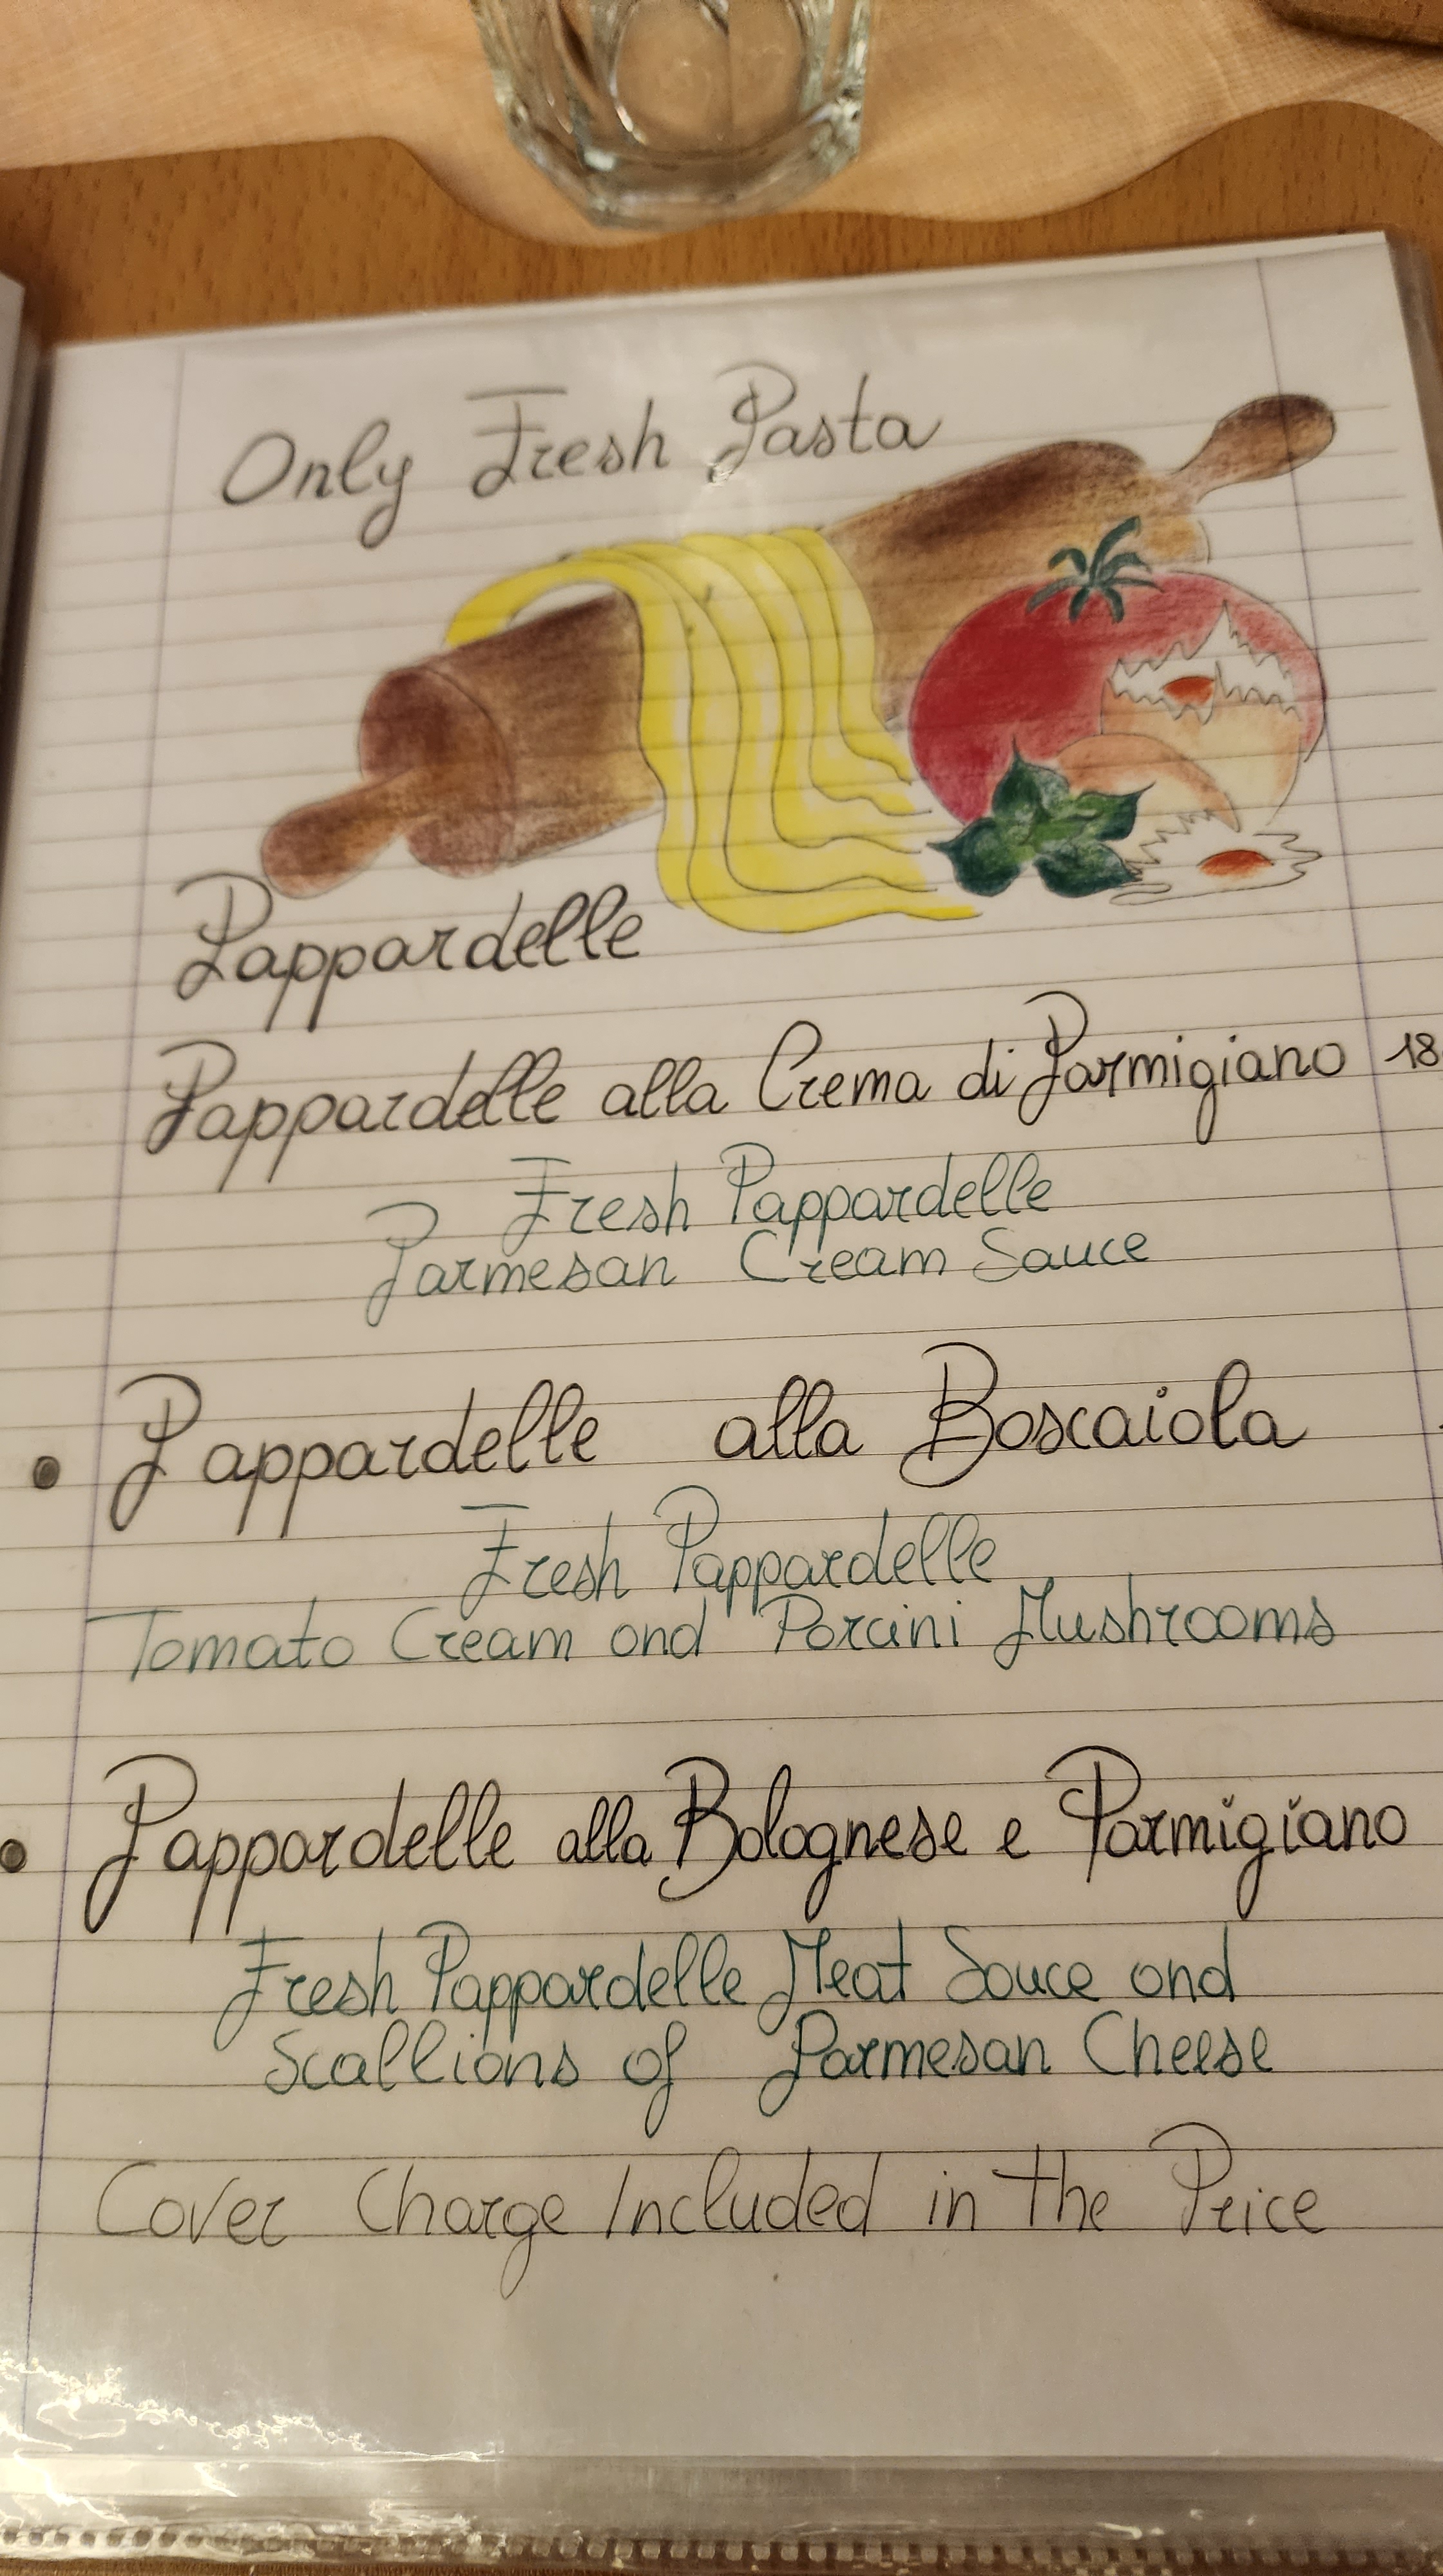 Only Fresh Pasta
Pappardelle
Pappardelle alla Crema di Parmigiano 18
Fresh Pappardelle
Parmesan Cream Sauce
• Pappardelle alla Boscaiola
Fresh Pappardelle
Tomato Cream and Porcini Mushrooms
• Pappardelle alla Bolognese e Parmigiano
Fresh Pappardelle Meat Sauce and
Scallions of Parmesan Cheese
Cover Charge Included in the Price